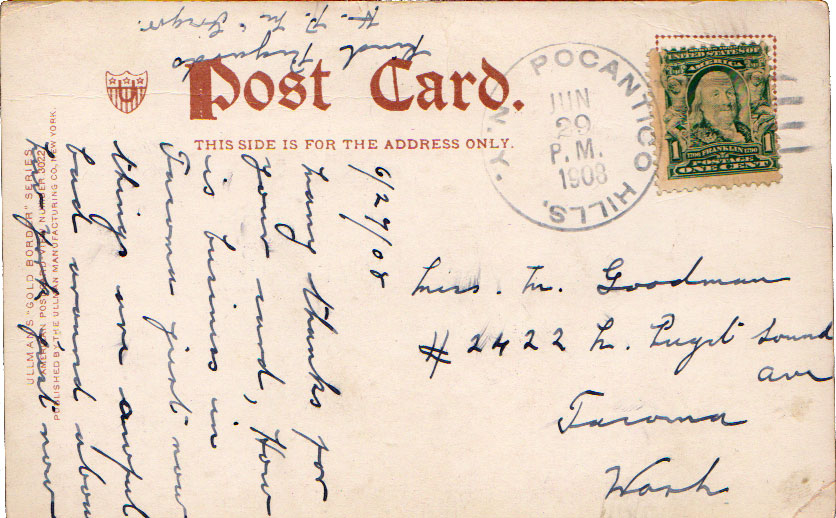 Post Card.
THIS SIDE IS FOR THE ADDRESS ONLY.
POCANTICO HILLS, N.Y.
JUN
29
P.M.
1908
UNITED STATES OF
AMERICA
1706 FRANKLIN 1790
1 1
POSTAGE
ONE CENT
Miss. M. Goodman
# 2422 N. Puget Sound
ave
Tacoma
Wash
6/29/08
Many thanks for
your card, How
is business in
Tacoma just now
things are awful
bad around abou
just now
Kind Regards
ULLMAN'S "GOLD BORDER" SERIES
AMERICAN POST CARD NUMBER 3022
PUBLISHED BY THE ULLMAN MANUFACTURING CO., NEW YORK